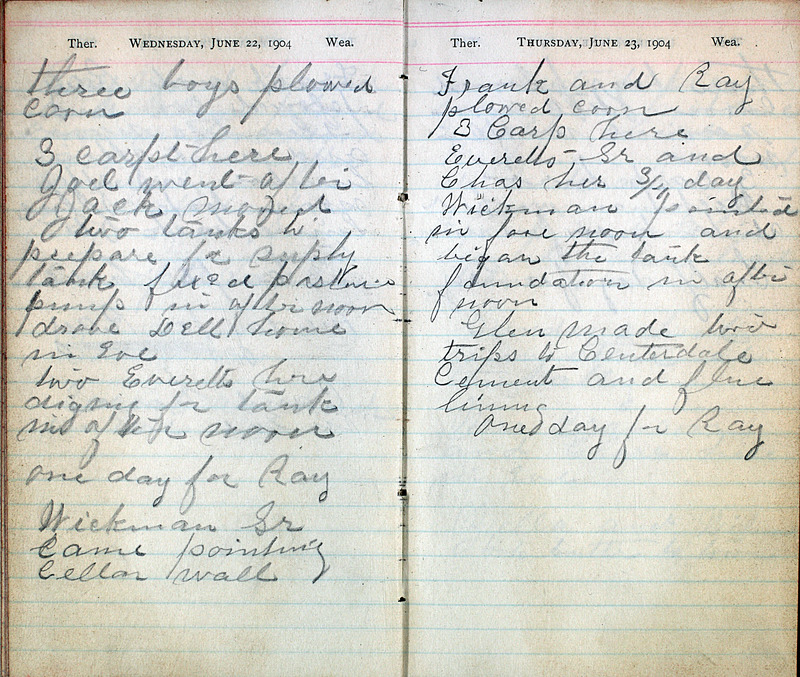 Ther. WEDNESDAY, JUNE 22, 1904 Wea.
three boys plowed
corn
3 carpt here
Joel went after
Jack moved
two tanks to
prepare for supply
tank fixed pasture
pump in after noon
drove Dell home
in Eve
two Everetts here
diging for tank
in after noon
one day for Ray
Wickman Sr
came pointing
Cellar wall
Ther. THURSDAY, JUNE 23, 1904 Wea.
Frank and Ray
plowed corn
3 Carp here
Everetts Sr and
Chas her 3/4 day
Wickman pointed
in fore noon and
began the tank
foundation in after
noon
Glen made two
trips to Centerdale
Cement and flue
lining
one day for Ray